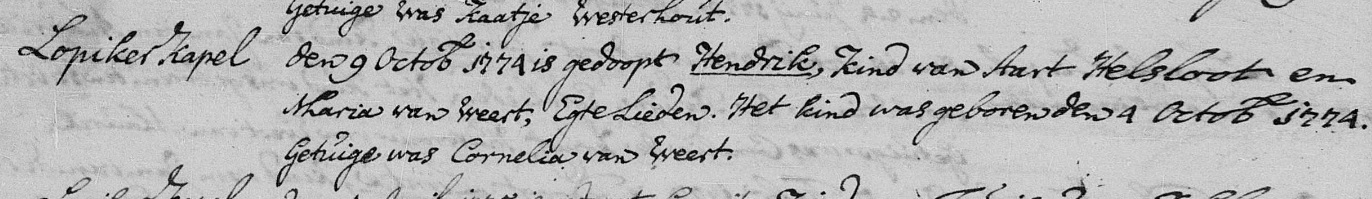 Getuige was Kaatje Westerhout.
Lopiker Kapel den 9 Octob 1774 is gedoopt Hendrik, Kind van Aart Helsloot en
Maria van Weert, Egte Lieden. Het kind was geboren den 4 Octob 1774.
Getuige was Cornelia van Weert.